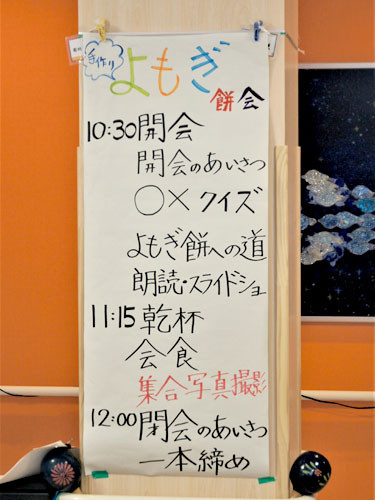 手作り
よもぎ
餅会
10:30開会
開会のあいさつ
○×クイズ
よもぎ餅への道
朗読・スライドショ
11:15乾杯
会食
集合写真撮影
12:00閉会のあいさつ
一本締め